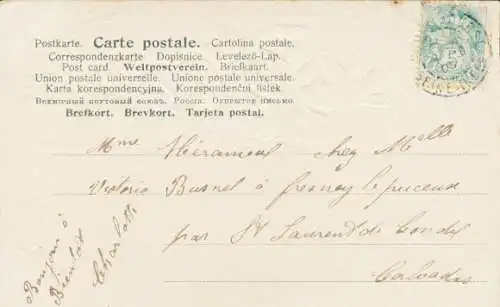 Postkarte. Carte postale. Cartolina postale.
Correspondenzkarte Dopisnice Levelező-Lap.
Post card. Weltpostverein. Briefkaart.
Union postale universelle. Unione postale universale.
Karta korespondencyjna. Korespondenční lístek.
Всемірный почтовый союз. Россія. Открытое письмо.
Brefkort. Brevkort. Tarjeta postal.
Mme chez Melle
Victoria Busnel à fresnay le puceux
par St Laurent de Condel
Calvados
Bonjour à
Bientôt
Charlotte